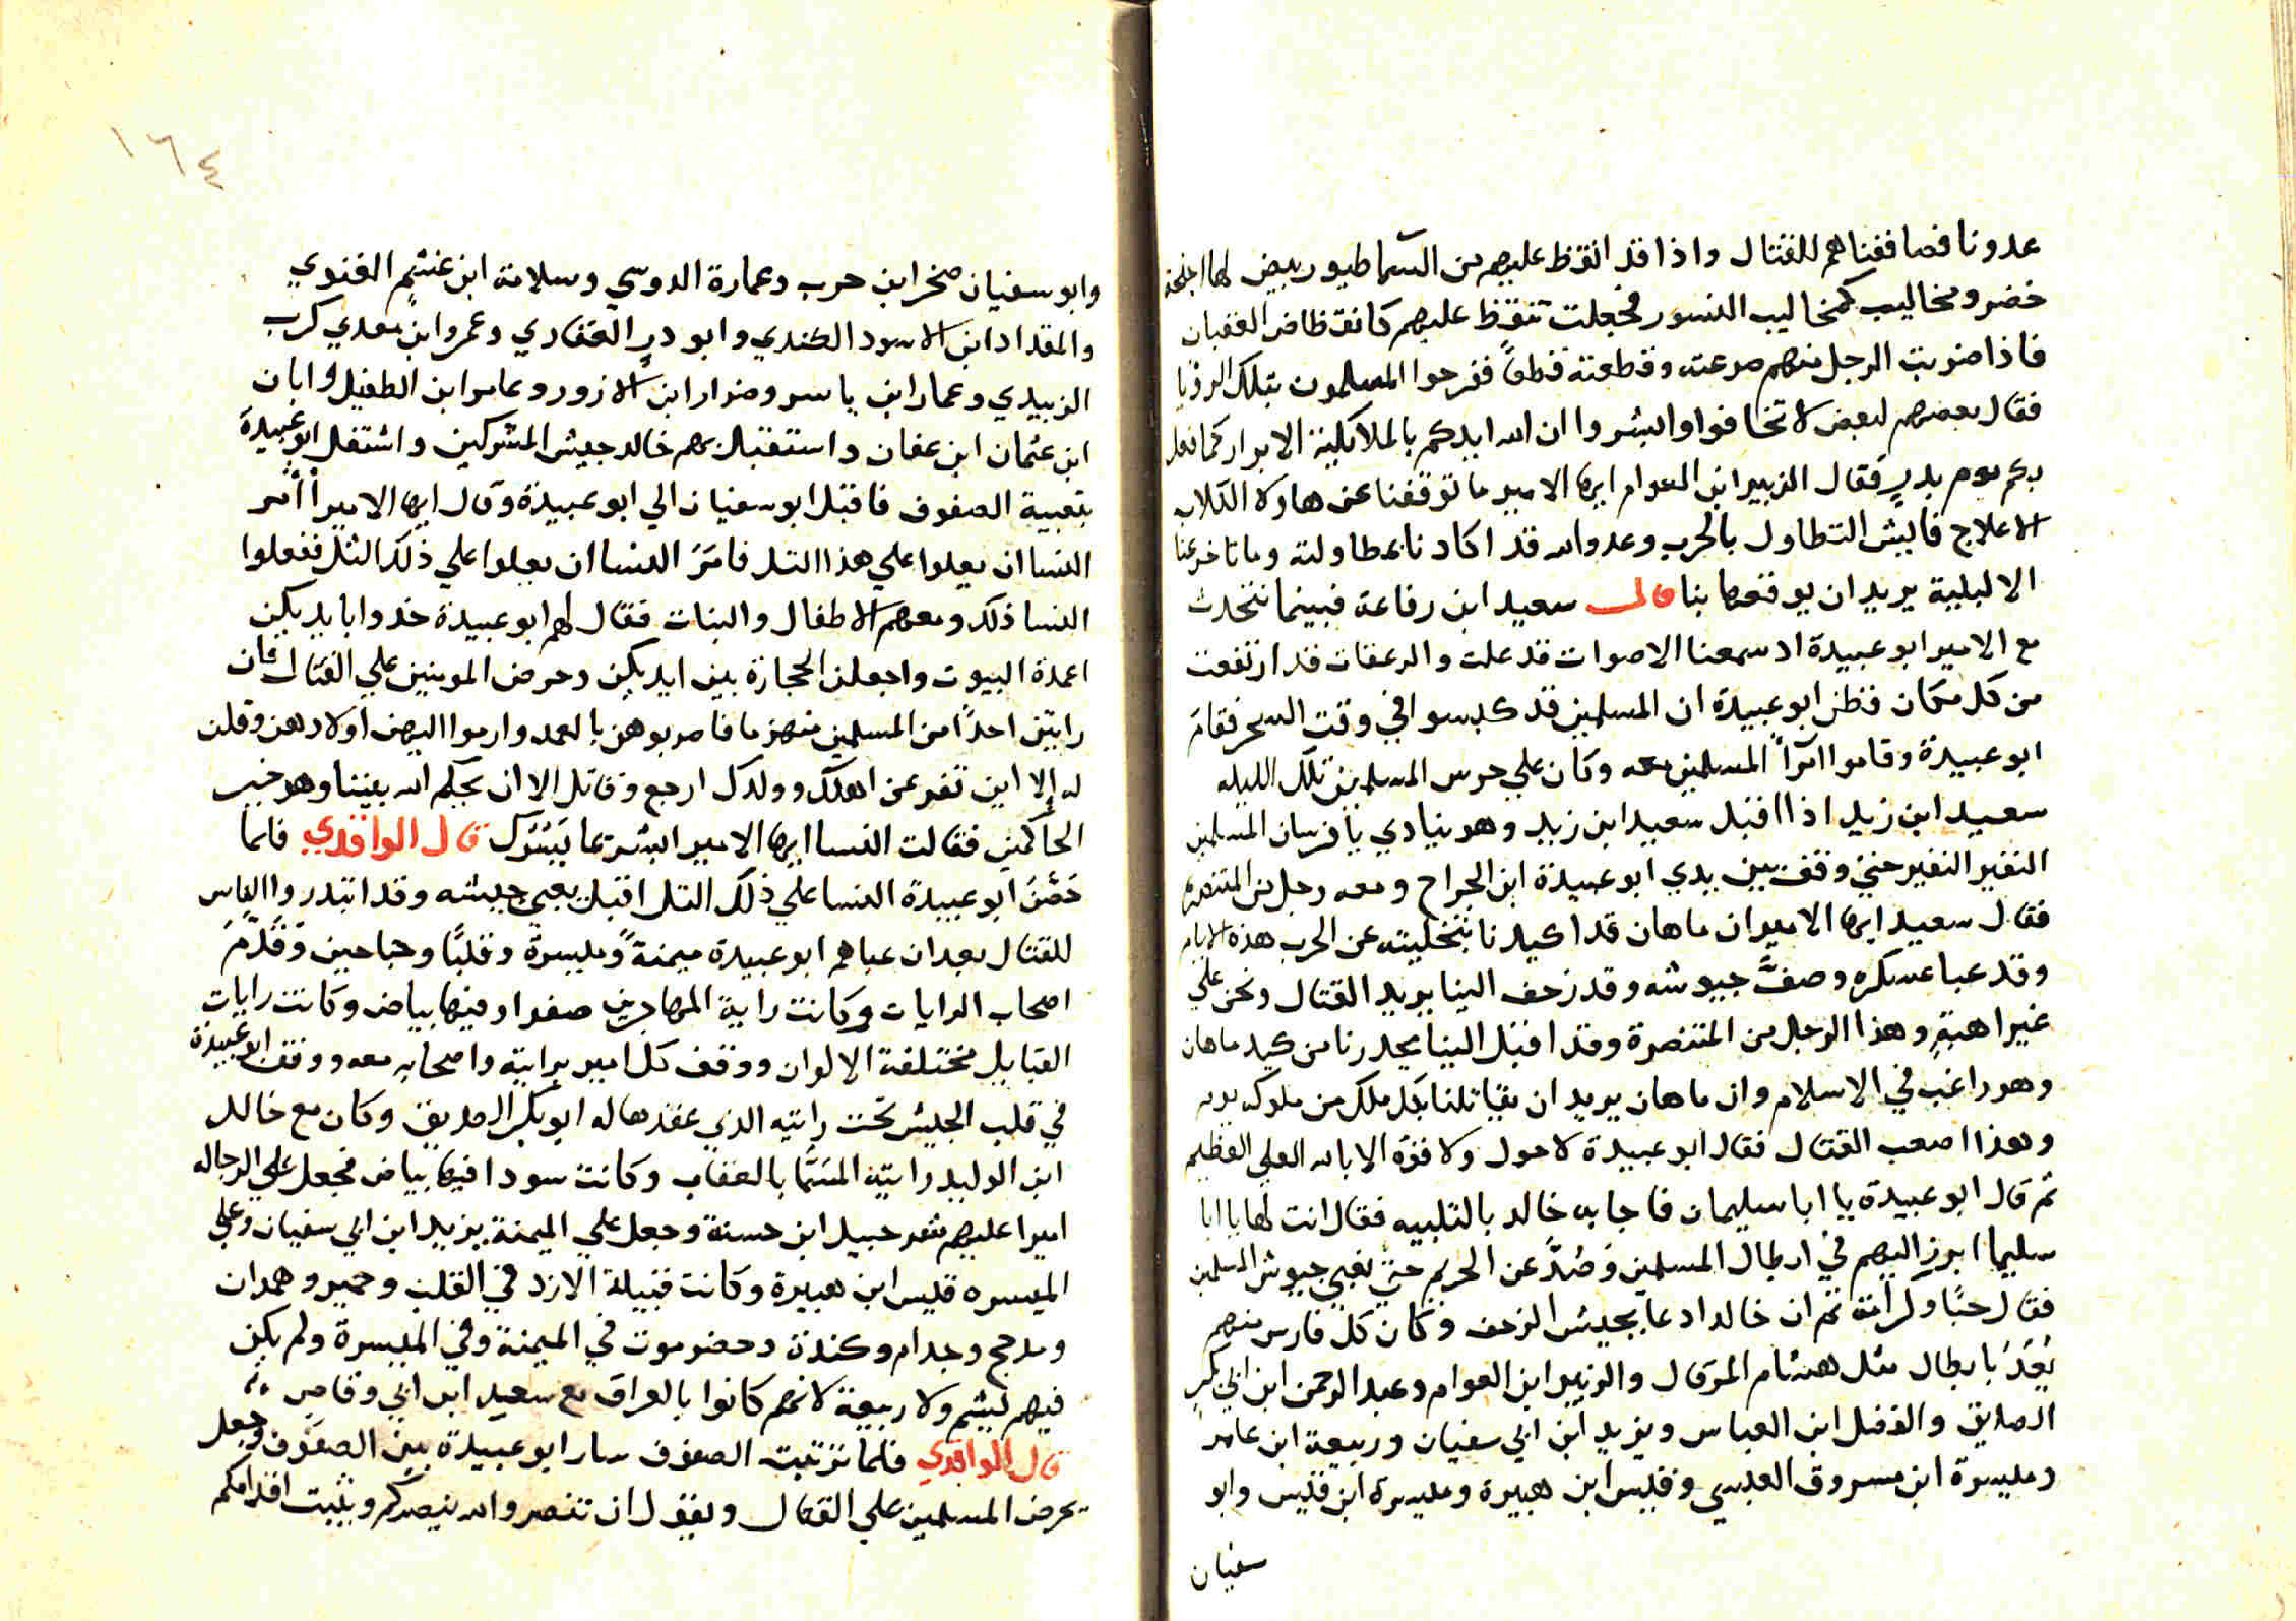 عدونا فصاففناهم للقتال واذا قد انقظ عليهم من السما طيور بيض لها اجنحة
خضر ومخاليب كمخاليب النسور فجعلت تنقظ عليهم كانقظاض العقبان
فاذا ضربت الرجل منهم صرعته وقطعته قطعاً ففرحوا المسلمون بتلك الرويا
فقال بعضهم لبعض لا تخافوا وابشروا ان الله ايدكم بالملايكة الابرار كما فعل
بكم يوم بدرٍ فقال الزبير ابن العوام ايها الامير ما توقفنا عن هاولا الكلاب
الاعلاج فاليش التطاول بالحرب وعدو الله قد اكادنا بمطاولته وما تاخر عنا
الا لبلية يريد ان يوقعها بنا قال سعيد ابن رفاعة فبينما نتحدث
مع الامير ابو عبيدة اد سمعنا الاصوات قد علت والزعقات قد ارتفعت
من كل مكان فظن ابو عبيدة ان المسلمين قد كبسوا في وقت السحر فقام
ابو عبيدة وقاموا امرآ المسلمين معه وكان علي حرس المسلمين تلك الليله
سعيد ابن زيد اذا اقبل سعيد ابن زيد وهو ينادي يا فرسان المسلمين
النفير النفير حتي وقف بين يدي ابو عبيدة ابن الجراح ومعه رجل من المتنصرة
فقال سعيد ايها الامير ان ماهان قد اكيدنا بتخليته عن الحرب هذه الايام
وقد عبا عسكره وصفَّ جيوشه وقد زحف الينا يريد القتال ونحن علي
غير اهبةٍ وهذا الرجل من المتنصرة وقد اقبل الينا يحدرنا من كيد ماهان
وهو راغب في الاسلام وان ماهان يريد ان يقاتلنا بكل ملك من ملوكه يوم
وهذا اصعب القتال فقال ابو عبيدة لا حول ولا قوة الا بالله العلي العظيم
ثم قال ابو عبيدة يا ابا سليمان فاجابه خالد بالتلبيه فقال انت لها يا ابا
سليما ابرز اليهم في ابطال المسلمين وصُدَّ عن الحريم حتي نعبي جيوش المسلمين
فقال حبًا وكرامة ثم ان خالدا دعا بجيش الزحف وكان كل فارس منهم
يُعَدُّ بابطال مثل هشام المرقال والزبير ابن العوام وعبد الرحمن ابن ابي بكرٍ
الصديق والفضل ابن العباس ويزيد ابن ابي سفيان وربيعة ابن عامر
وميسرة ابن مسروق العبسي وقيس ابن هبيرة وميسرة ابن قيس وابو
سفيان
١٦٤
وابو سفيان صخر ابن حرب وعمارة الدوسي وسلامة ابن غنثمٍ الغنوي
والمقداد ابن الاسود الكندي وابو درٍ الغفاري وعمروا ابن معدي كرب
الزبيدي وعمار ابن ياسر وضرار ابن الازور وعامر ابن الطفيل وابان
ابن عثمان ابن عفان واستقبل بهم خالد جيش المشركين واشتغل ابو عبيدة
بتعبية الصفوف فاقبل ابو سفيان الي ابو عبيدة وقال ايها الامير أأمر
النسا ان يعلوا علي هذا التل فامَرَ النسا ان يعلوا علي ذلك التل ففعلوا
النسا ذلك ومعهم الاطفال والبنات فقال لهم ابو عبيدة خدوا بايديكن
اعمدة البيوت واجعلن الحجارة بين ايديكن وحرض المومنين علي القتال فان
رايتن احدًا من المسلمين منهزما فاضربوهن بالعمد وارموا اليهن اولادهن وقلن
له إلا اين تفر عن اهلك وولدك ارجع وقاتل الا ان يحكم الله بيننا وهو خير
الحاكمين فقالت النسا ايها الامير ابشر بما يَسُرُّك قال الواقدي فلما
حَصَّنَ ابو عبيدة النسا علي ذلك التل اقبل يعبي جيشه وقد ابتدروا الناس
للقتال بعد ان عباهم ابو عبيدة ميمنةً وميسرةً وقلبًا وجناحين وقدَّمَ
اصحاب الرايات وكانت راية المهاجرين صفرا وفيها بياض وكانت رايات
القبايل مختلفة الالوان ووقف كل امير برايته واصحابه معه ووقف ابو عبيدة
في قلب الجيش تحت رايته الذي عقدها له ابو بكر الصديق وكان مع خالد
ابن الوليد رايته المسَمّا بالعقاب وكانت سودا فيها بياض فجعل علي الرجاله
اميرا عليهم شرحبيل ابن حسنة وجعل علي الميمنة يزيد ابن ابي سفيان وعلي
الميسره قيس ابن هبيرة وكانت قبيلة الازد في القلب وحمير وهمدان
ومدحج وجدام وكندة وحضرموت في الميمنة وفي الميسرة ولم يكن
فيهم ليثم ولا ربيعة لانهم كانوا بالعراق مع سعيد ابن ابي وقاص
قال الواقدي فلما ترتبت الصفوف سار ابو عبيدة بين الصفوف وجعل
يحرض المسلمين علي القتال ويقول ان تنصروا الله ينصركم ويثبت اقدامكم